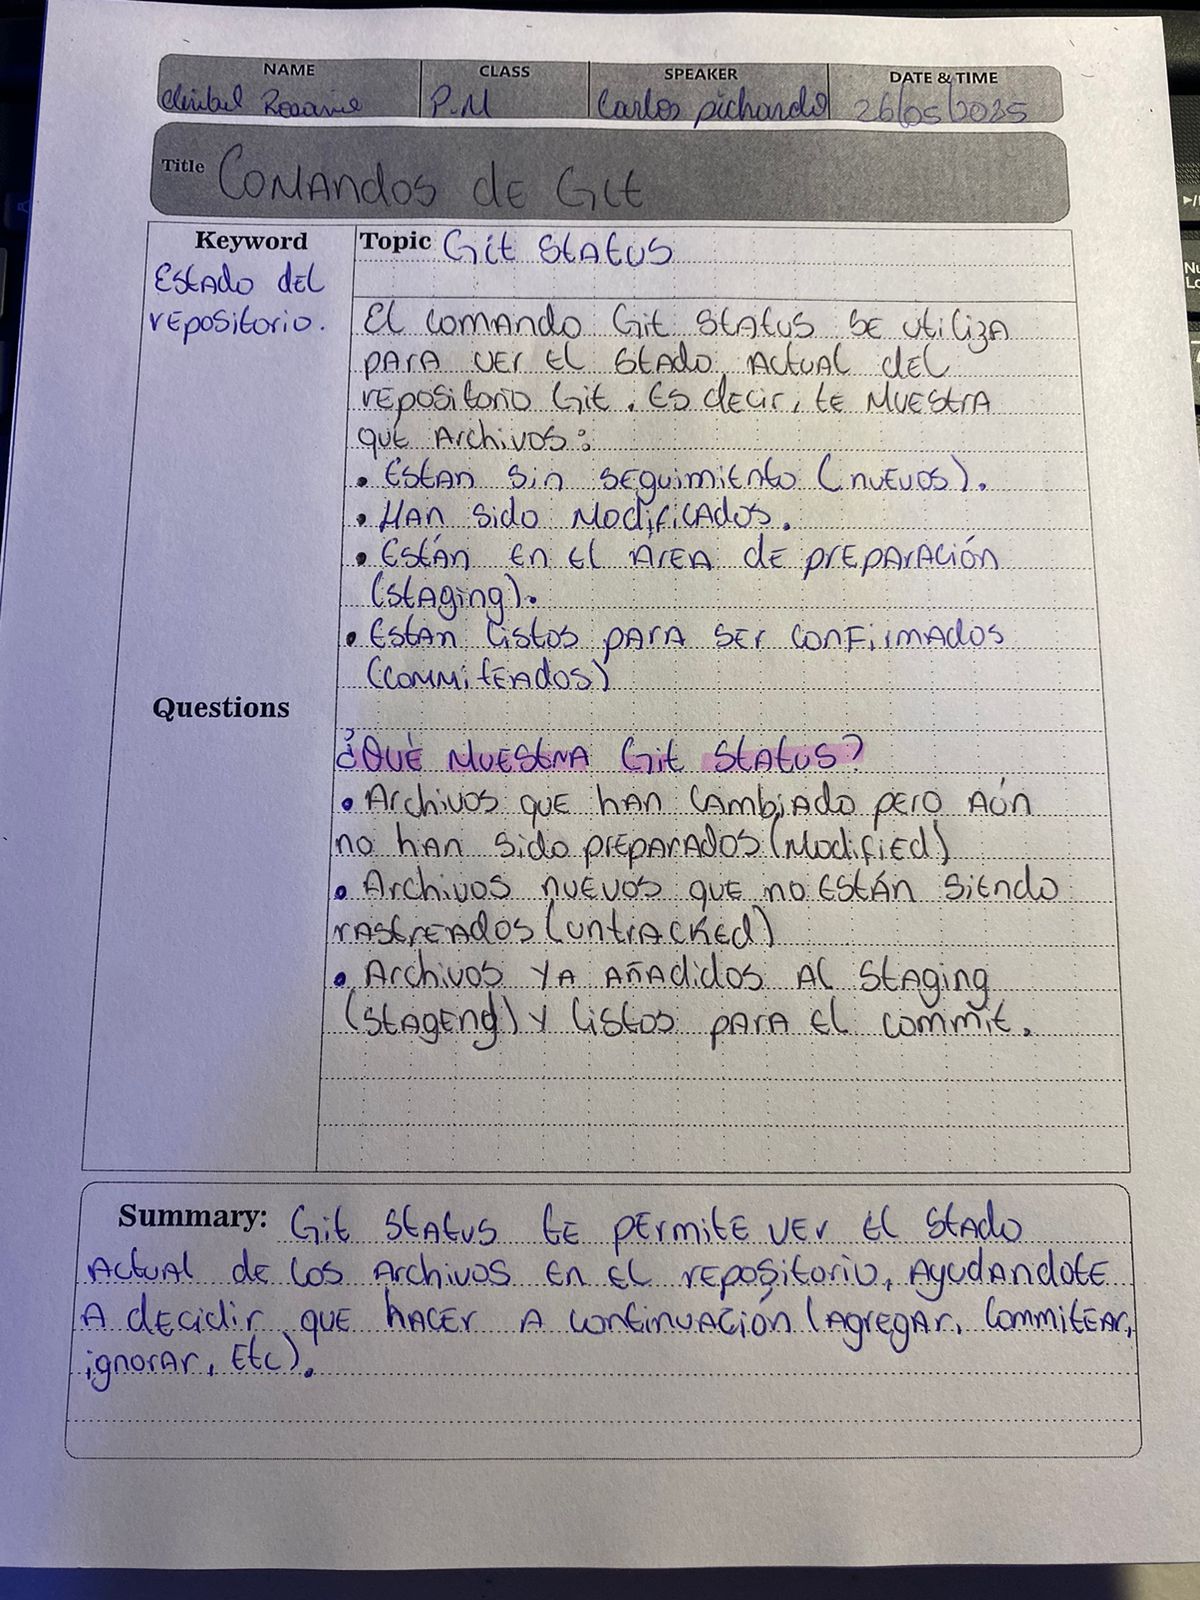 NAME CLASS SPEAKER DATE & TIME
P.M Carlos pichardo 26/05/2025
Title Comandos de Git
Keyword Topic Git Status
Estado del
repositorio.
El comando Git Status se utiliza
para ver el stado actual del
repositorio Git. Es decir, te muestra
que archivos:
• Estan sin seguimiento (nuevos).
• Han sido modificados.
• Están en el área de preparación
(staging).
• Estan listos para ser confirmados
(commiteados)
Questions
¿Qué muestra Git status?
• Archivos que han cambiado pero aún
no han sido preparados (Modified)
• Archivos nuevos que no están siendo
rastreados (untracked)
• Archivos ya añadidos al staging
(stagend) y listos para el commit.
Summary: Git status te permite ver el stado
actual de los archivos en el repositorio, ayudandote
a decidir que hacer a continuación (agregar, commitear,
ignorar, etc).